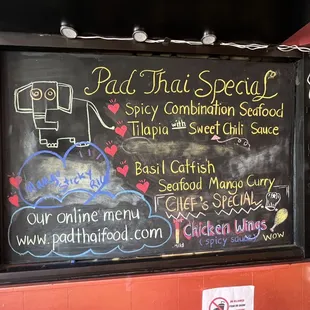 Pad Thai Special
Spicy Combination Seafood
Tilapia with Sweet Chili Sauce
Basil Catfish
Seafood Mango Curry
Sticky
Our online menu
www.padthaifood.com
CHEF's SPECIAL
Chicken Wings
(spicy sauce) WOW